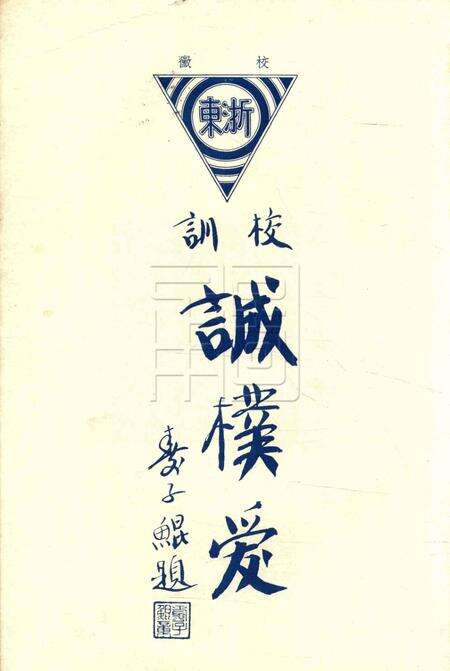 校徽
浙東
校訓
誠樸愛
壽子鯤題